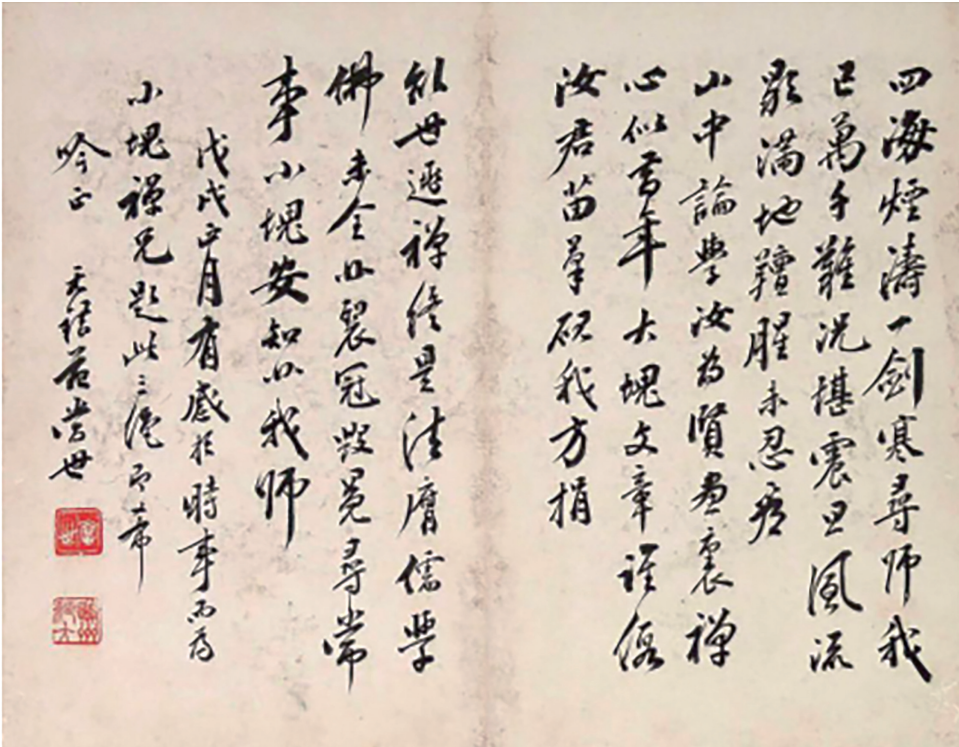 四海煙濤一劍寒尋師我
已萬千難況堪震旦風流
歇滿地羶腥未忍看
山中論學汝為賢畫裏禪
心似昔年大塊文章誰假
汝君苗筆硯我方捐
世遯禪後是法膺儒學
佛未全水裂冠毀冕尋常
事小塊安知水我師
戊戌正月有感於時事而為
小塊禪兄題此三絕即希
吟正